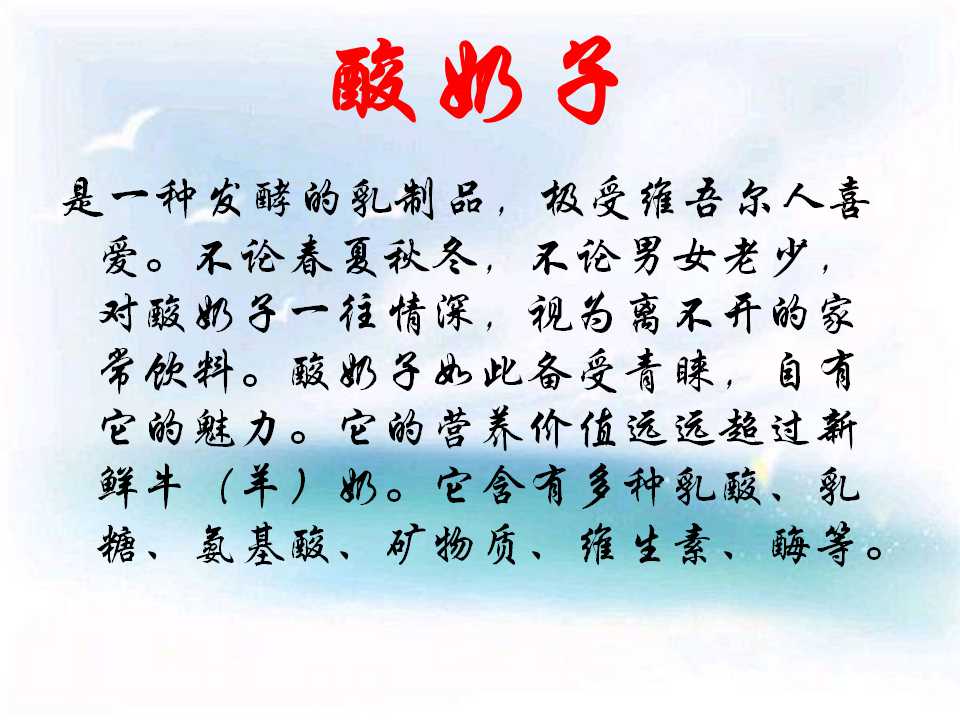 酸奶子
是一种发酵的乳制品，极受维吾尔人喜
爱。不论春夏秋冬，不论男女老少，
对酸奶子一往情深，视为离不开的家
常饮料。酸奶子如此备受青睐，自有
它的魅力。它的营养价值远远超过新
鲜牛（羊）奶。它含有多种乳酸、乳
糖、氨基酸、矿物质、维生素、酶等。